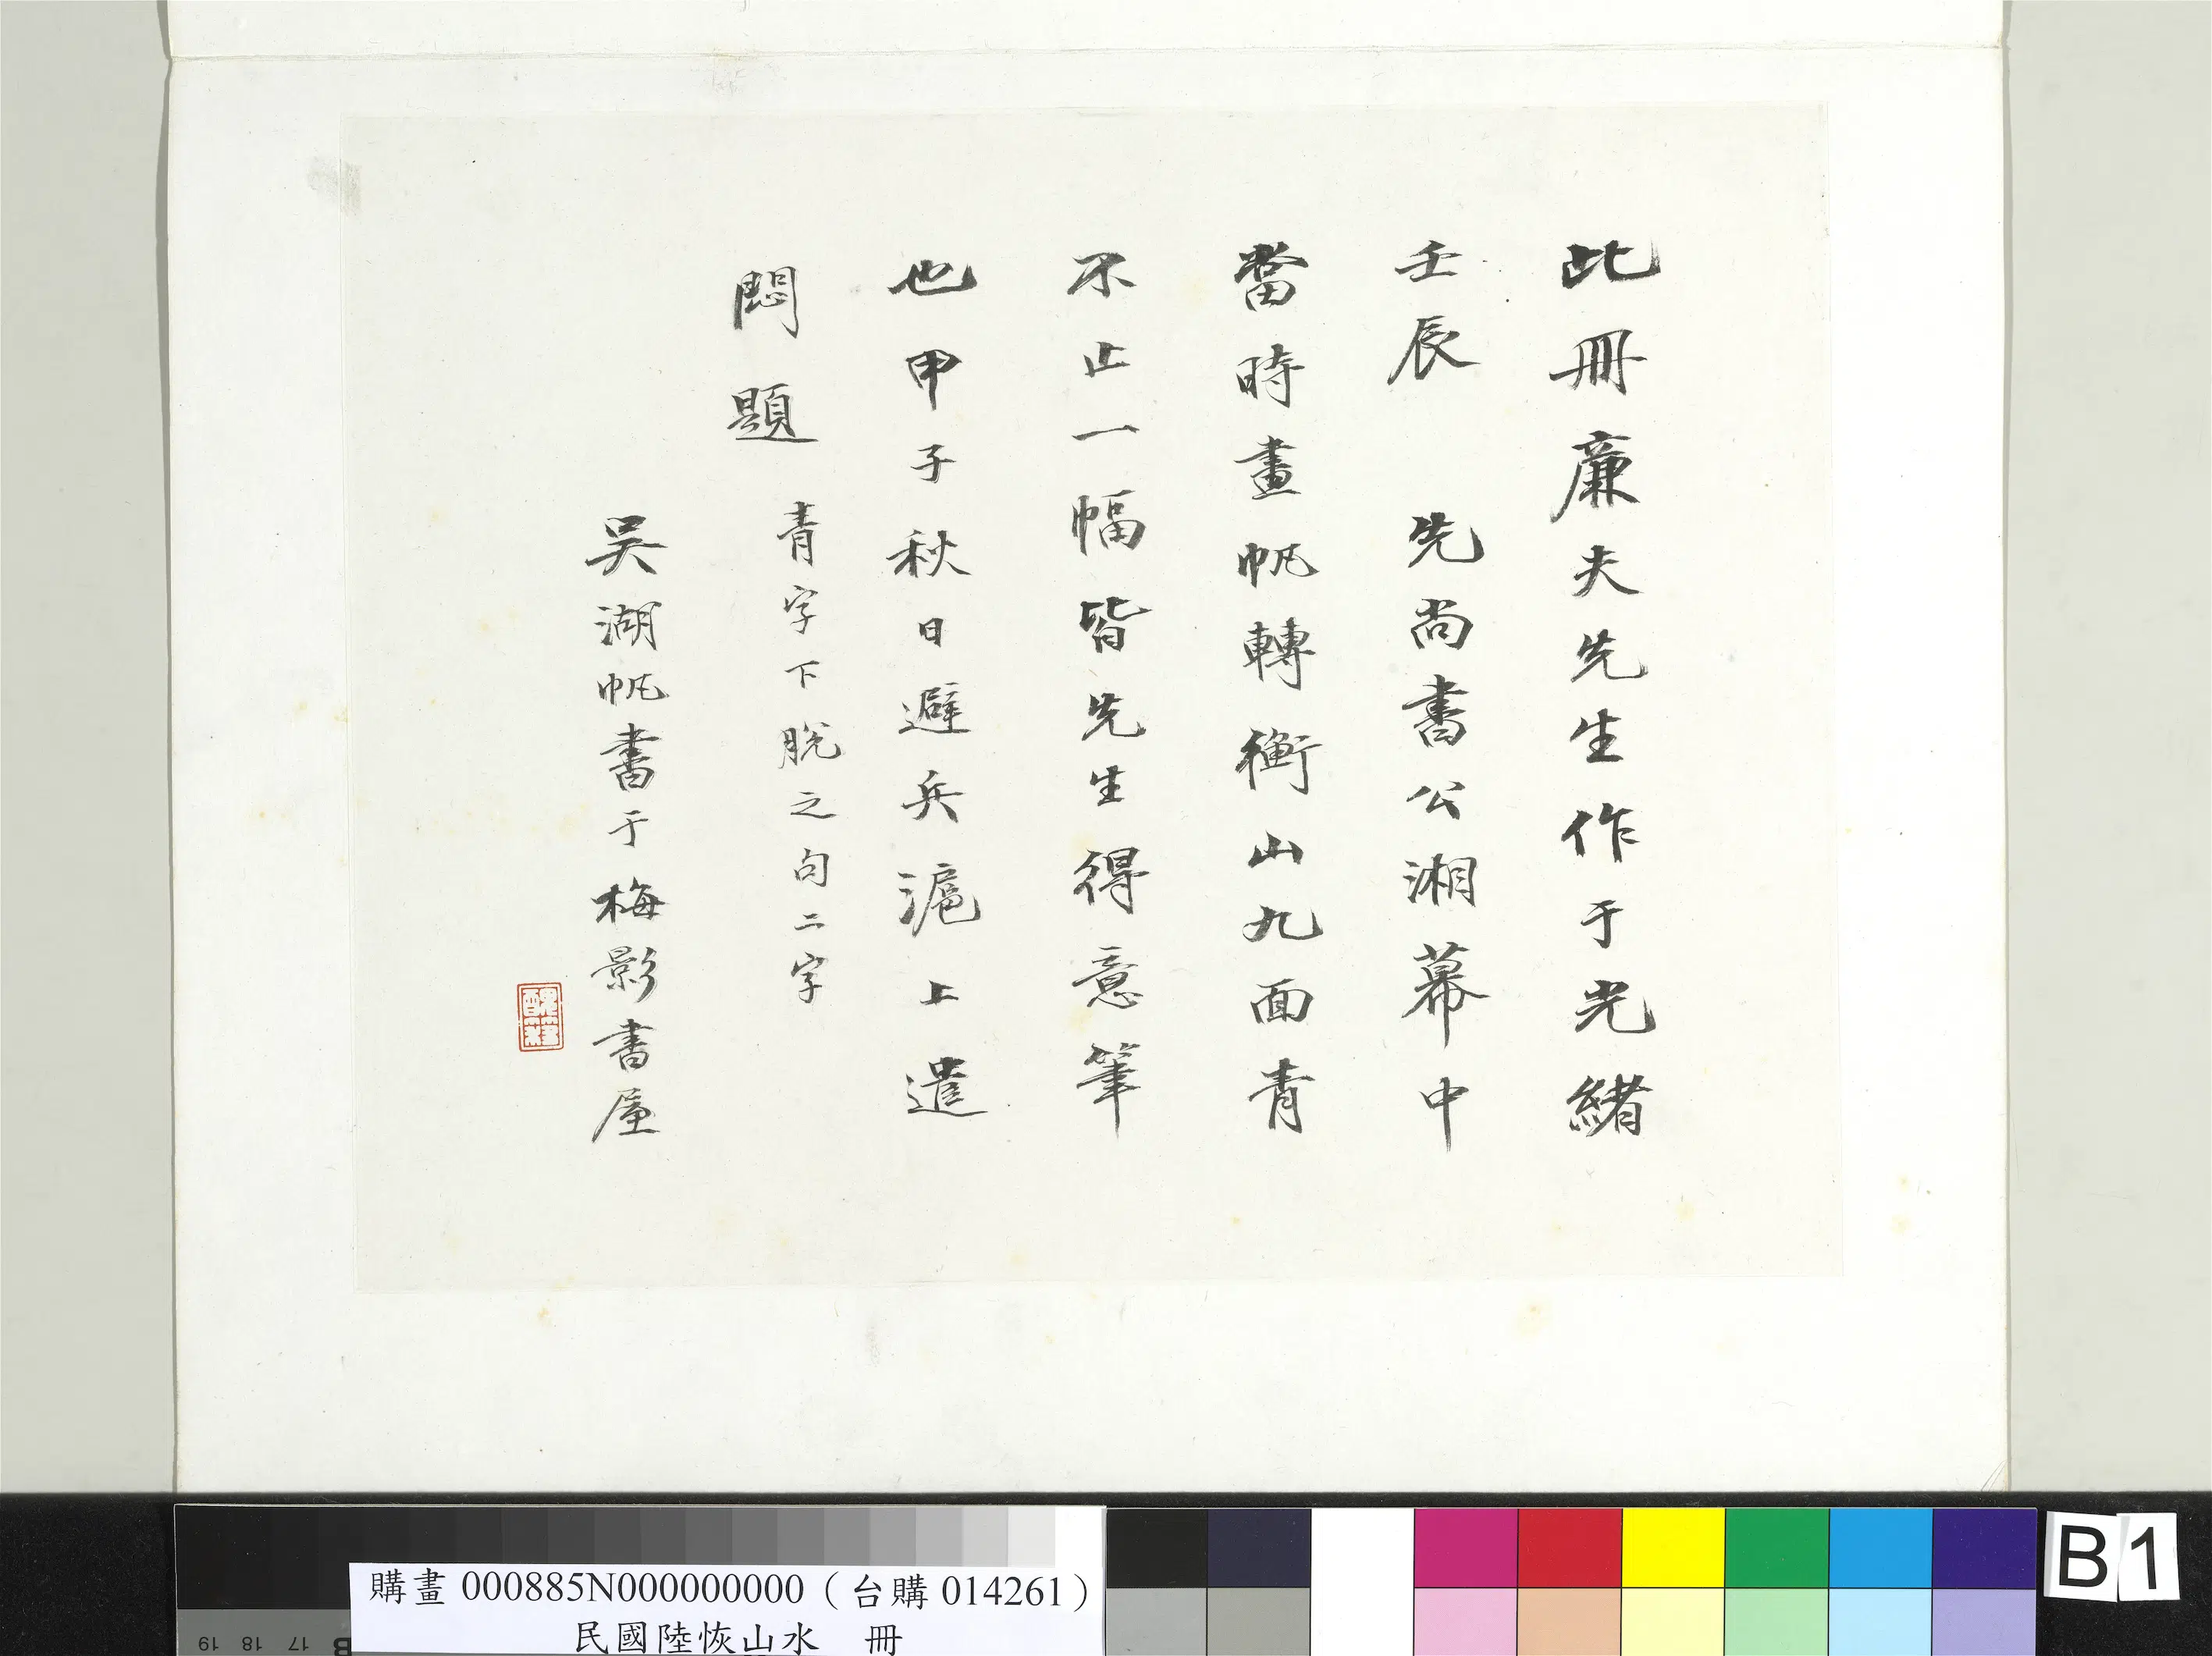 此冊廉夫先生作于光緒
壬辰 先尚書公湘幕中
當時畫帆轉衡山九面青
不止一幅皆先生得意筆
也甲子秋日避兵滬上遣
悶題 青字下脫之句二字
吳湖帆書于梅影書屋
購畫 000885N000000000（台購 014261）
民國陸恢山水 冊
B1
19 18 17 B